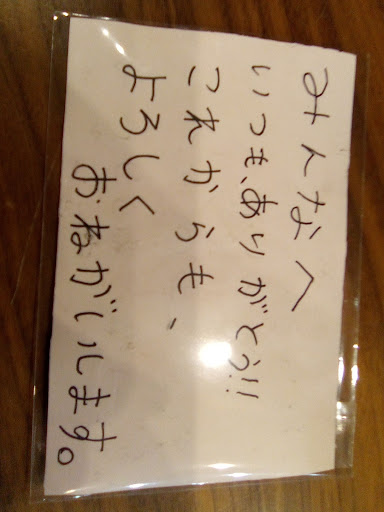 みんなへ
いつも、ありがとう!!
これからも、
よろしく
おねがいします。